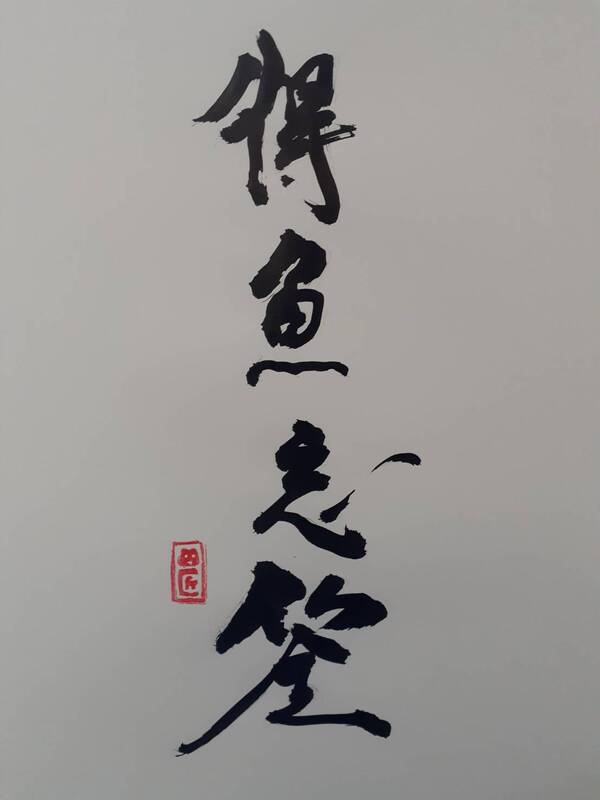 得魚忘筌